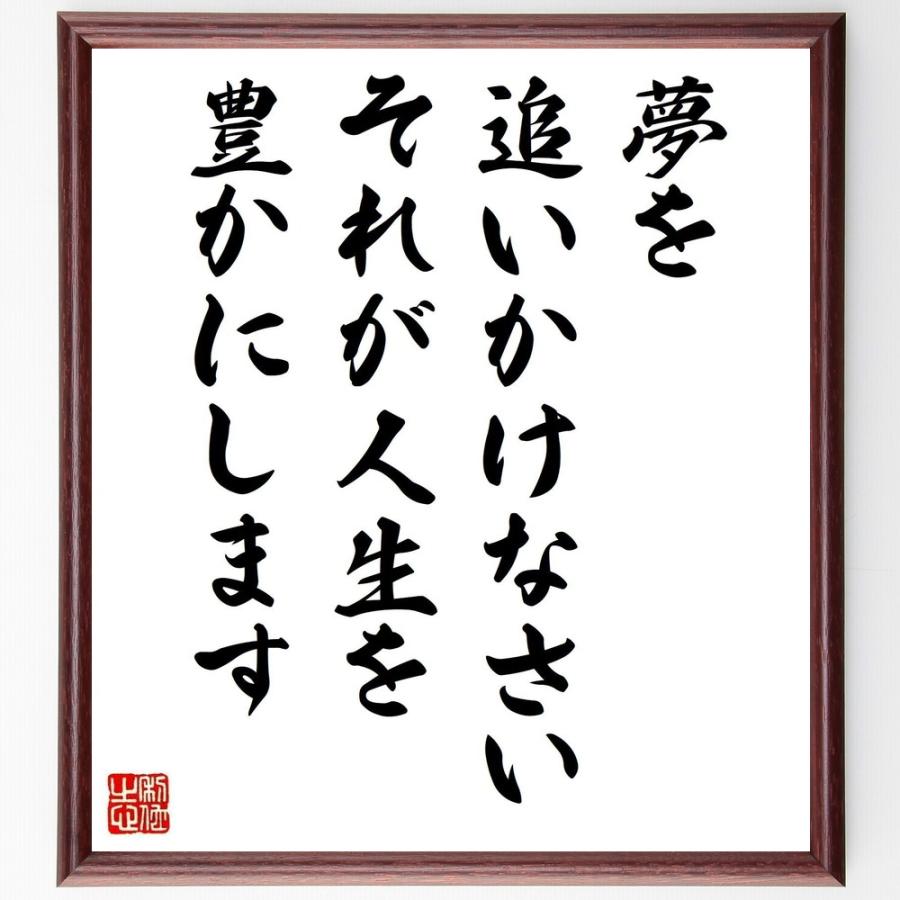 夢を
追いかけなさい
それが人生を
豊かにします